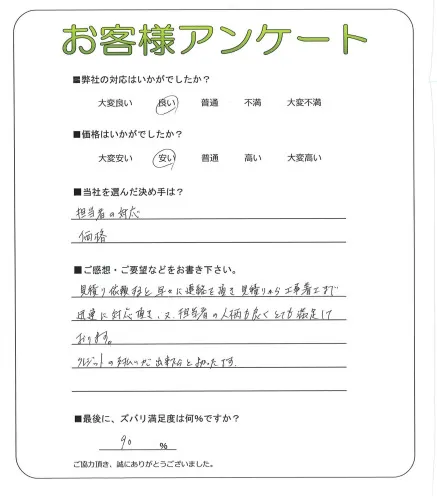 お客様アンケート
■弊社の対応はいかがでしたか？
大変良い 良い 普通 不満 大変不満
■価格はいかがでしたか？
大変安い 安い 普通 高い 大変高い
■当社を選んだ決め手は？
担当者の対応
価格
■ご感想・ご要望などをお書き下さい。
見積り依頼すると早々に連絡を頂き見積りから工事着工まで
迅速に対応頂き、又、担当者の人柄も良くとても満足して
おります。
クレジットの支払いが出来ると助かったです
■最後に、ズバリ満足度は何％ですか？
90 ％
ご協力頂き、誠にありがとうございました。